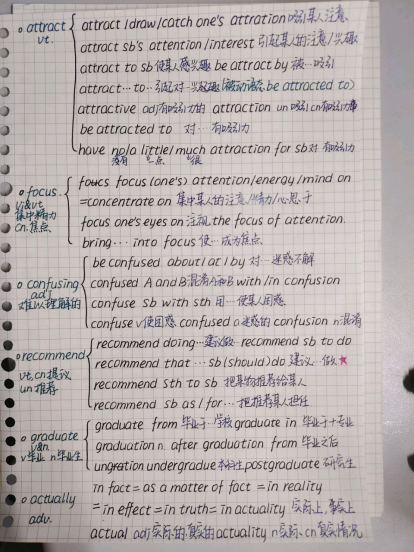 attract attract/draw/catch one's attration 吸引某人注意
vt. attract sb's attention/interest 引起某人的注意/兴趣
attract to sb 使某人感兴趣 be attract by 被…吸引
attract…to…引起对…兴趣 be attracted to)
attractive adj有吸引力的 attraction un吸引cn有吸引力事
be attracted to 对…有吸引力
have no/a little/much attraction for sb对 有吸引力
没有 一点 很
focus foucs focus (one's) attention/energy/mind on
vi&vt. =concentrate on 集中某人的注意/精力/心思于
集中精力 focus one's eyes on 注视 the focus of attention.
cn.焦点 bring…into focus 使…成为焦点
be confused about/at/by 对…迷惑不解
confusing confused A and B混淆A和B with/in confusion
adj 难以理解的 confuse sb with sth 用…使某人困惑
confuse v使困惑 confused a迷惑的 confusion n混淆
recommend doing…建议做…recommend sb to do
recommend recommend that …sb(should)do 建议…做★
vt,cn提议 recommend sth to sb 把某物推荐给某人
un推荐 recommend sb as/for…把推荐某人担任
graduate graduate from 毕业于…学校graduate in 毕业于…专业
v&n graduation n. after graduation from 毕业之后
v毕业 n毕业生 ungration undergradue 本科生postgraduate 研究生
actually in fact = as a matter of fact = in reality
adv. = in effect = in truth = in actuality 实际上,事实上
actual adj实际的,真实的 actuality n实际、cn真实情况